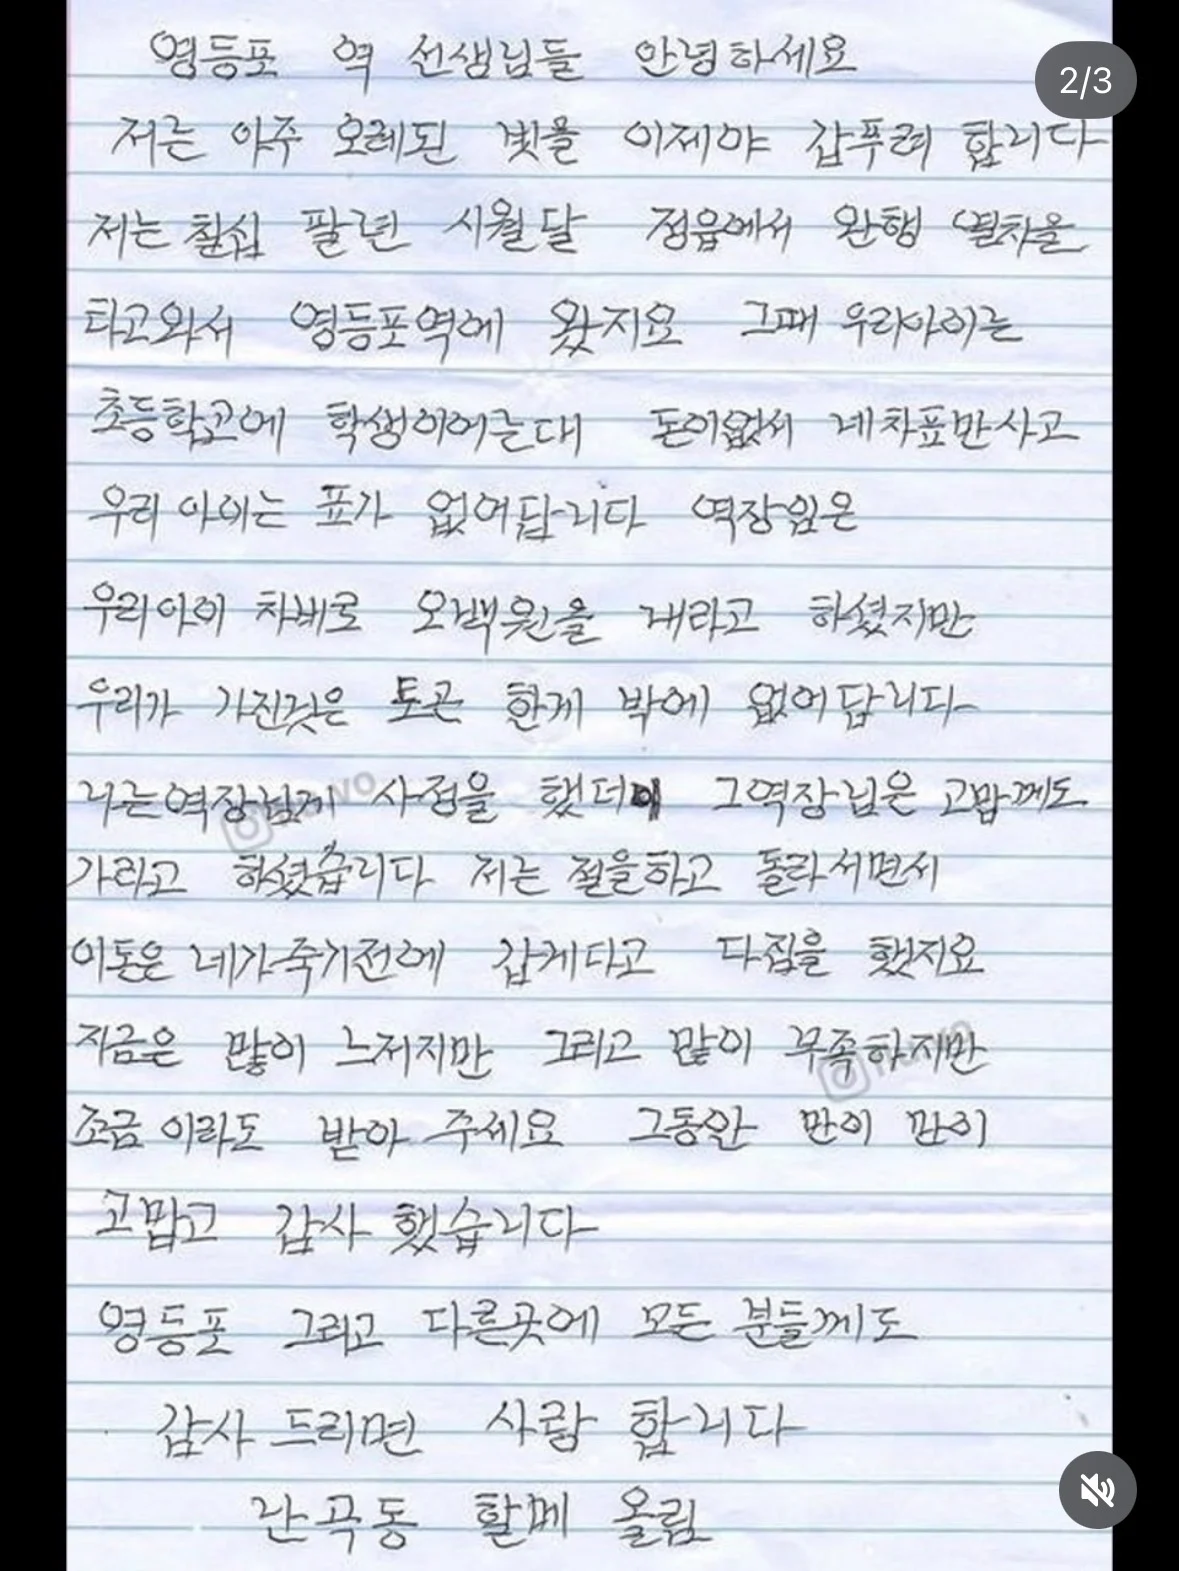 2/3
영등포 역 선생님들 안녕하세요
저는 아주 오레된 빛을 이제야 갑푸려 합니다
저는 칠십 팔년 시월달 정읍에서 완행 열차을
타고와서 영등포역에 왔지요 그때 우리아이는
초등학고에 학생이어는대 돈이없서 네차표만사고
우리 아이는 표가 없어답니다 역장임은
우리아이 차비로 오백원을 내라고 하셨지만
우리가 가진것은 토큰 한게 박에 없어답니다
나는역장님게 사정을 했더이 그역장님은 고맙께도
가라고 하셨습니다 저는 절을하고 돌라서면서
이돈은 네가죽기전에 갑게다고 다짐을 했지요
지금은 많이 느저지만 그리고 많이 부족하지만
조금 이라도 받아 주세요 그동안 만이 만이
고맙고 갑사 했습니다
영등포 그리고 다른곳에 모든 분들께도
감사 드리면 사랑 합니다
난곡동 할메 올림